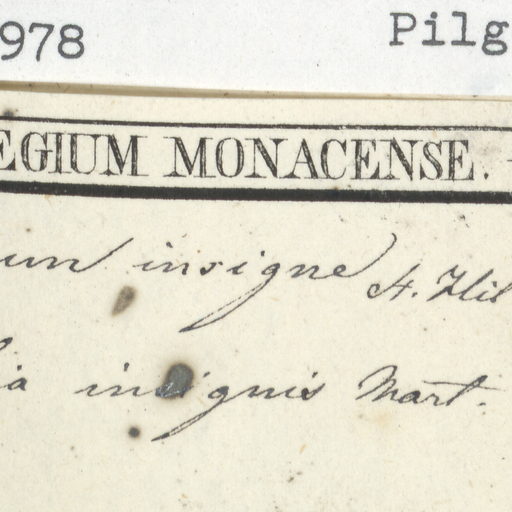 978 Pilg
EGIUM MONACENSE.
um insigne St. Hil
ia insignis Mart.